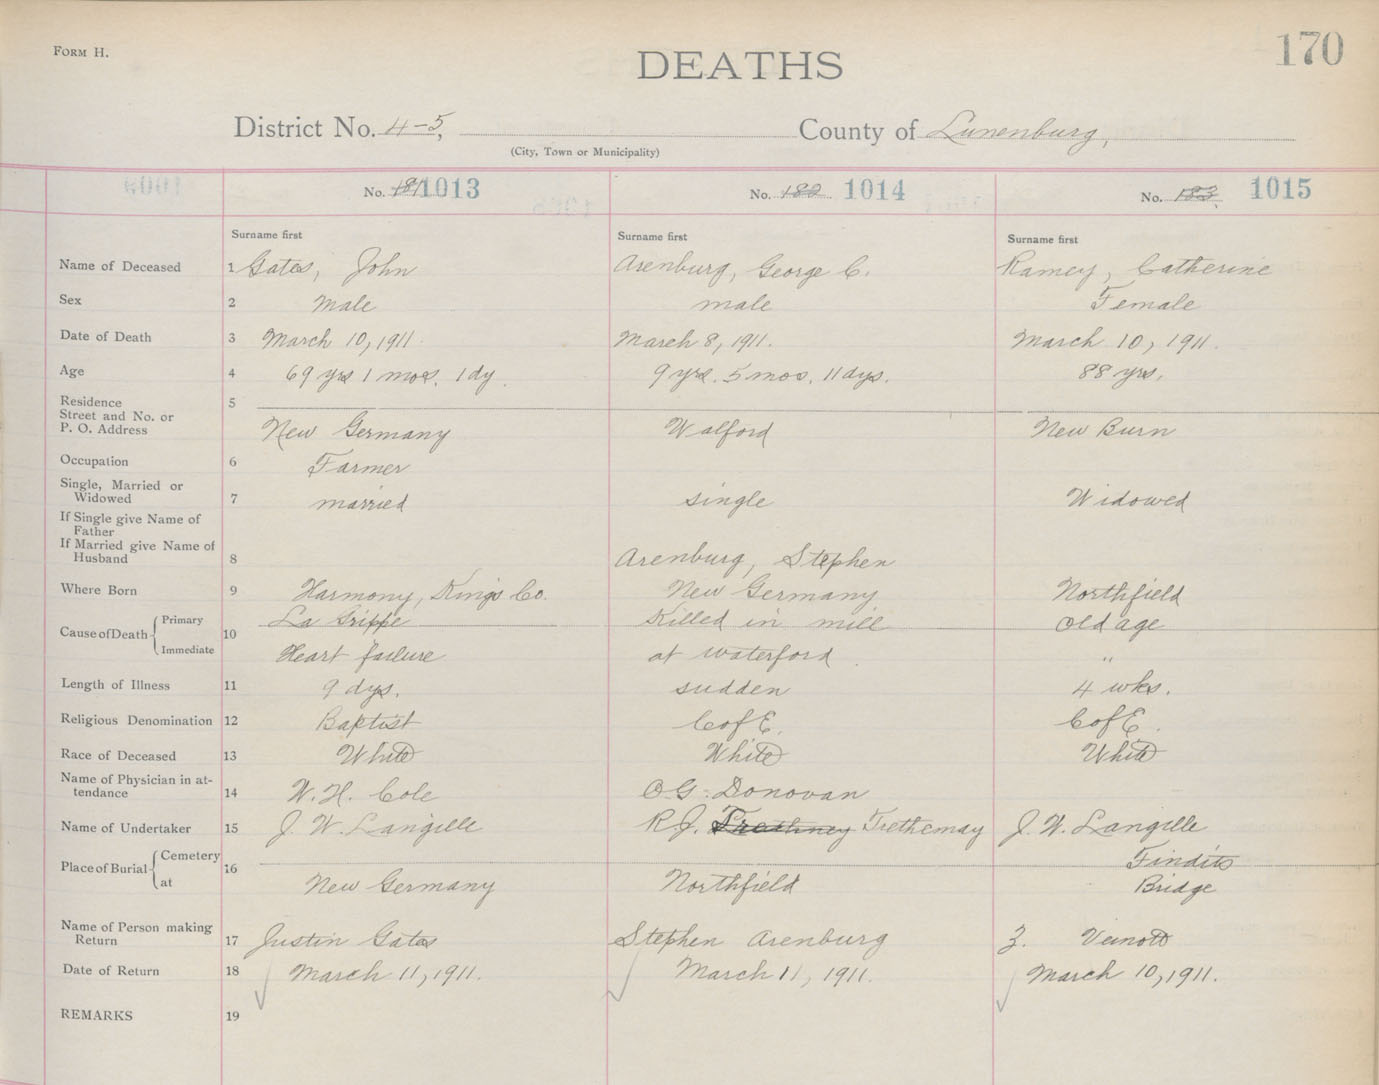 FORM H.
170
DEATHS
District No. 4-5, County of Lunenburg,
(City, Town or Municipality)
No. 181 1013 No. 182 1014 No. 183 1015
Surname first Surname first Surname first
Name of Deceased 1 Gates, John Arenburg, George C. Ramey, Catherine
Sex 2 Male male Female
Date of Death 3 March 10, 1911. March 8, 1911. March 10, 1911.
Age 4 69 yrs 1 mos. 1 dy. 9 yrs. 5 mos. 11 dys. 88 yrs.
Residence 5
Street and No. or
P. O. Address New Germany Walford New Burn
Occupation 6 Farmer
Single, Married or
Widowed 7 married single Widowed
If Single give Name of
Father
If Married give Name of
Husband 8 Arenburg, Stephen
Where Born 9 Harmony, Kings Co. New Germany Northfield
Cause of Death Primary 10 La Grippe Killed in mill old age
Immediate Heart failure at waterford. "
Length of Illness 11 9 dys. sudden 4 wks.
Religious Denomination 12 Baptist C of E. C of E.
Race of Deceased 13 White White White
Name of Physician in at-
tendance 14 W. H. Cole O. G. Donovan
Name of Undertaker 15 J. W. Langille R. J. Trethemay J. W. Langille
Place of Burial Cemetery 16 Findits
at New Germany Northfield Bridge
Name of Person making
Return 17 Justin Gates Stephen Arenburg Z. Veinott
Date of Return 18 March 11, 1911. March 11, 1911. March 10, 1911.
REMARKS 19